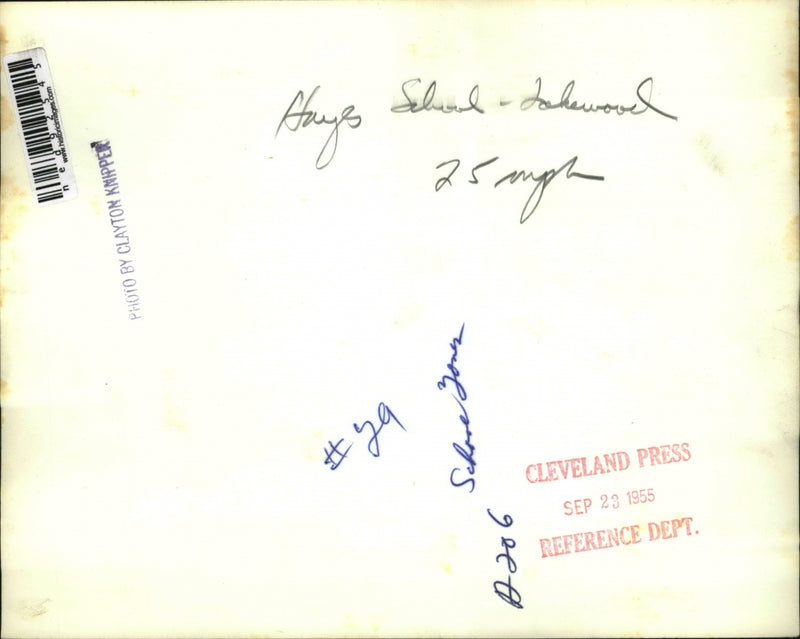 Hayes School - Lakewood
25 mph
ned92545
www.historicimages.com
PHOTO BY CLAYTON KNIPPER
# 29
School Zones
A-206
CLEVELAND PRESS
SEP 23 1955
REFERENCE DEPT.